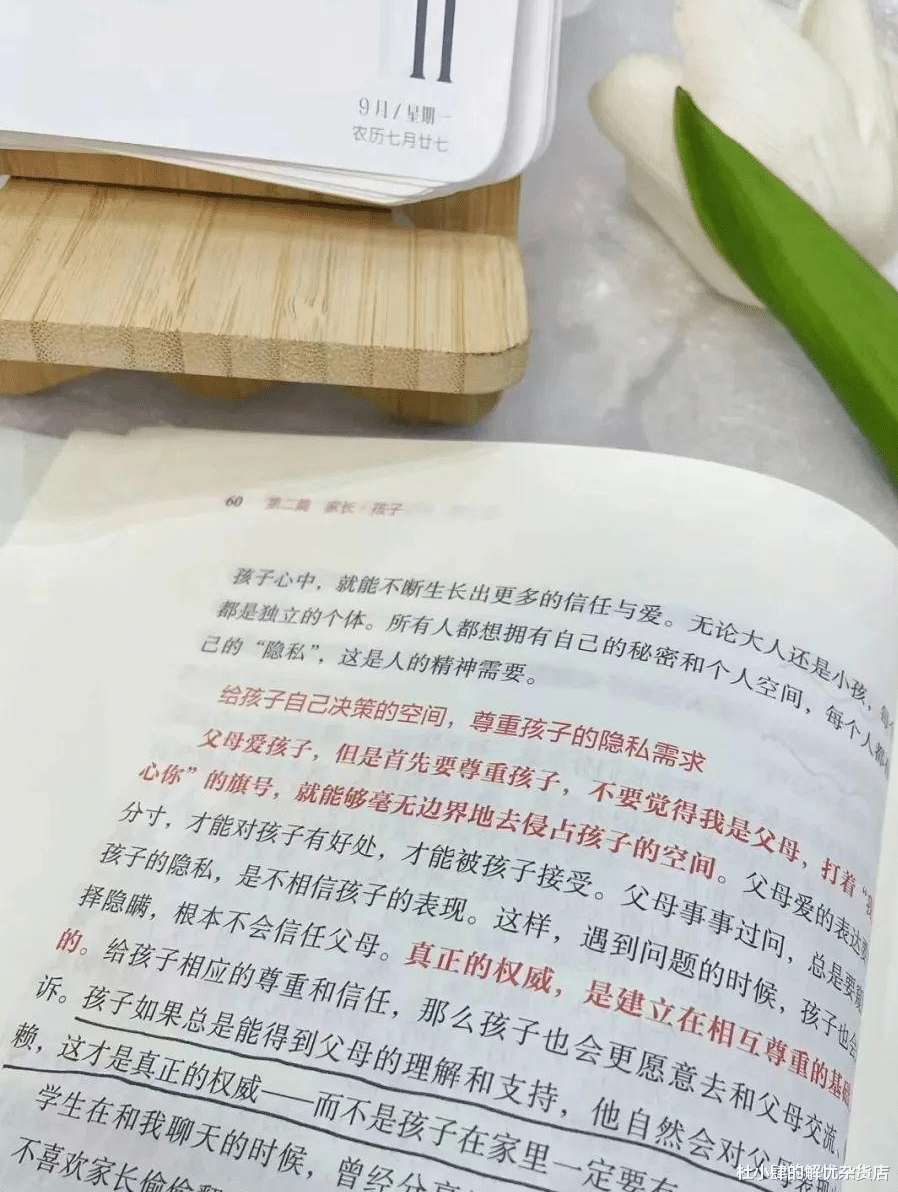 11
9月/星期一
农历七月廿七
60 第二篇 家长·孩子
孩子心中，就能不断生长出更多的信任与爱。无论大人还是小孩，每个
都是独立的个体。所有人都想拥有自己的秘密和个人空间，每个人都有
己的“隐私”，这是人的精神需要。
给孩子自己决策的空间，尊重孩子的隐私需求
父母爱孩子，但是首先要尊重孩子，不要觉得我是父母，打着“我
心你”的旗号，就能够毫无边界地去侵占孩子的空间。父母爱的表达要
分寸，才能对孩子有好处，才能被孩子接受。父母事事过问，总是要窥
孩子的隐私，是不相信孩子的表现。这样，遇到问题的时候，孩子也会
择隐瞒，根本不会信任父母。真正的权威，是建立在相互尊重的基础
的。给孩子相应的尊重和信任，那么孩子也会更愿意去和父母交流、
诉。孩子如果总是能得到父母的理解和支持，他自然会对父母
赖，这才是真正的权威——而不是孩子在家里一定要有
学生在和我聊天的时候，曾经分享
不喜欢家长偷偷翻
杜小肆的解忧杂货店